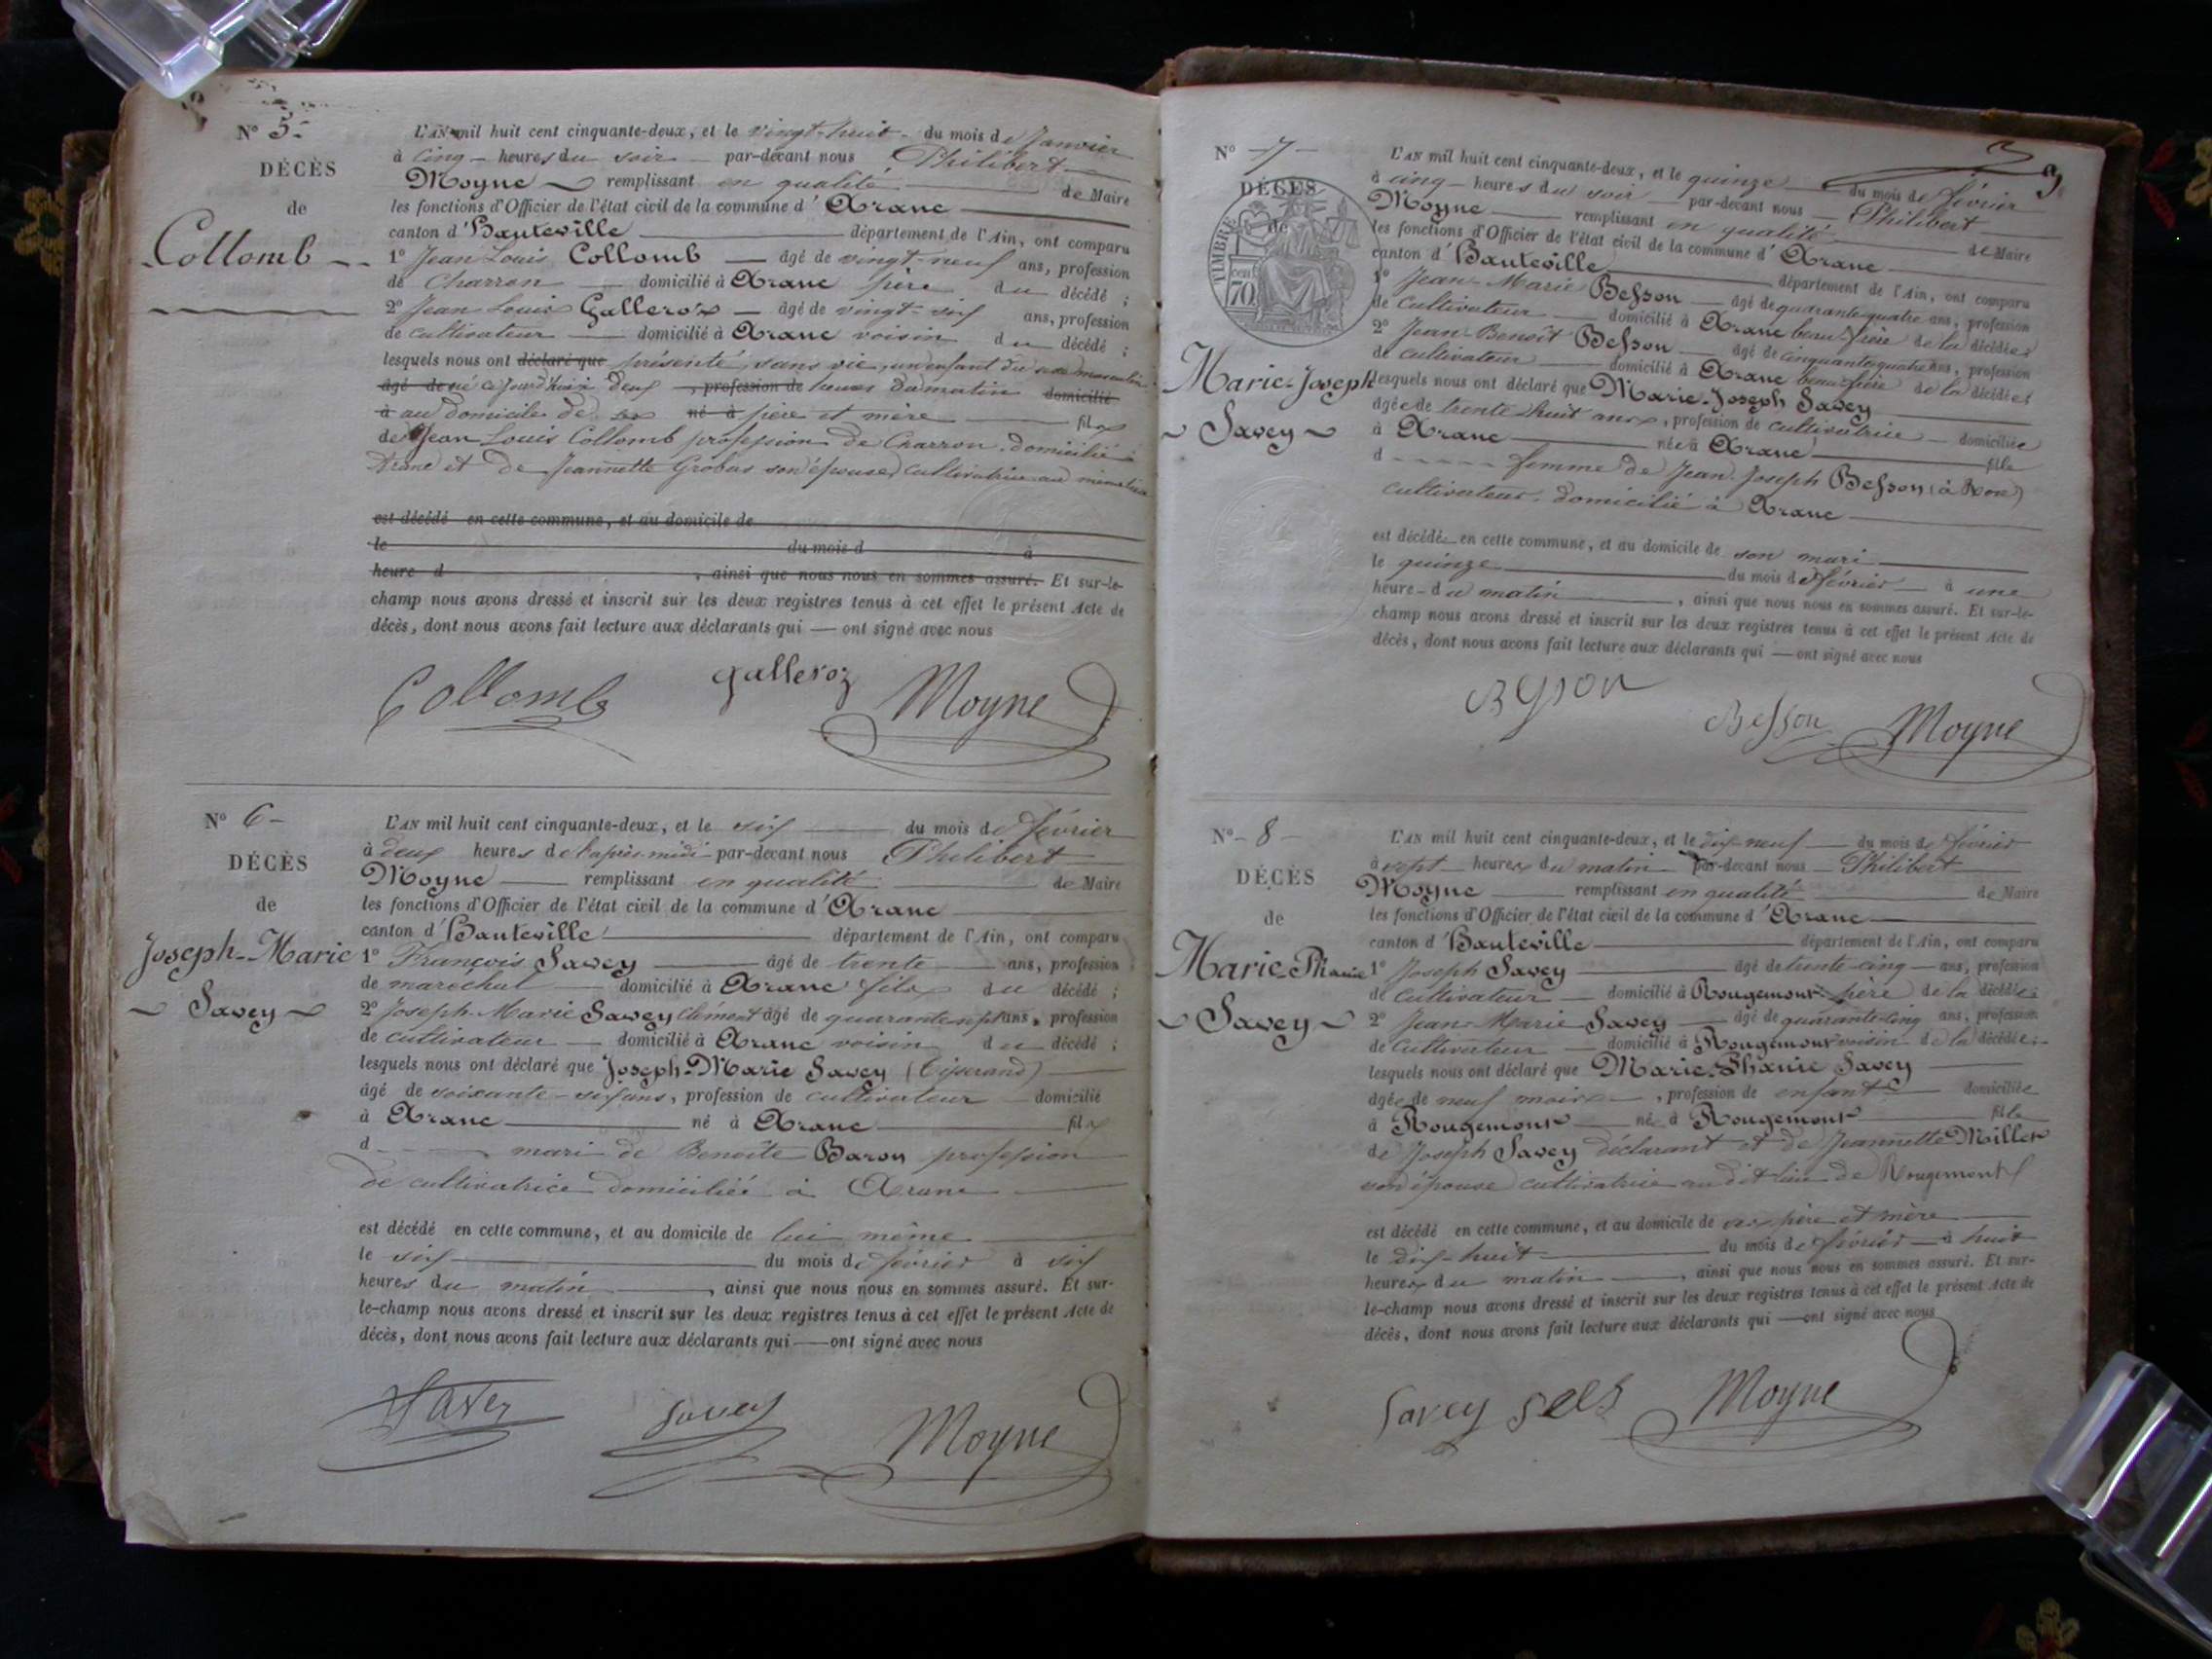 N° 5.
DÉCÈS
de
Collomb
L'AN mil huit cent cinquante-deux, et le vingt-huit du mois de Janvier
à cinq heures du soir par-devant nous Philibert
Moyne remplissant en qualité de Maire
les fonctions d'Officier de l'état civil de la commune d'Aranc
canton d'Hauteville département de l'Ain, ont comparu
1° Jean Louis Collomb âgé de vingt-neuf ans, profession
de Charron domicilié à Aranc père du décédé ;
2° Jean Louis Galleroz âgé de vingt-six ans, profession
de cultivateur domicilié à Aranc voisin du décédé ;
lesquels nous ont déclaré que présenté, sans vie, un enfant du sexe masculin
âgé de né ce jourd'hui à deux , profession de heures du matin domicilié
à au domicile de ses né à père et mère fils
de Jean Louis Collomb profession de Charron domicilié à
Aranc et de Jeannette Grobas son épouse, cultivatrice au même lieu
est décédé en cette commune, et au domicile de
le du mois d à
heure d , ainsi que nous nous en sommes assuré. Et sur-le-
champ nous avons dressé et inscrit sur les deux registres tenus à cet effet le présent Acte de
décès, dont nous avons fait lecture aux déclarants qui — ont signé avec nous
Collomb galleroz Moyne
N° 6
DÉCÈS
de
Joseph-Marie
Savey
L'AN mil huit cent cinquante-deux, et le six du mois de février
à deux heures de l'après-midi par-devant nous Philibert
Moyne remplissant en qualité de Maire
les fonctions d'Officier de l'état civil de la commune d'Aranc
canton d'Hauteville département de l'Ain, ont comparu
1° François Savey âgé de trente ans, profession
de maréchal domicilié à Aranc fils du décédé ;
2° Joseph-Marie Savey Clément âgé de quarante-sept ans, profession
de cultivateur domicilié à Aranc voisin du décédé ;
lesquels nous ont déclaré que Joseph-Marie Savey (Tisserand)
âgé de soixante-six ans, profession de cultivateur domicilié
à Aranc né à Aranc fils
d mari de Benoîte Baron profession
de cultivatrice domiciliée à Aranc
est décédé en cette commune, et au domicile de lui même
le six du mois de février à six
heures du matin , ainsi que nous nous en sommes assuré. Et sur-
le-champ nous avons dressé et inscrit sur les deux registres tenus à cet effet le présent Acte de
décès, dont nous avons fait lecture aux déclarants qui — ont signé avec nous
Savey Savey Moyne
3
N° 7
DÉCÈS
de
TIMBRE
70 cen
Marie-Joseph
Savey
L'AN mil huit cent cinquante-deux, et le quinze du mois de février
à cinq heures du soir par-devant nous Philibert
Moyne remplissant en qualité de Maire
les fonctions d'Officier de l'état civil de la commune d'Aranc
canton d'Hauteville département de l'Ain, ont comparu
1° Jean-Marie Besson âgé de quarante-quatre ans, profession
de cultivateur domicilié à Aranc beau-frère de la décédée ;
2° Jean-Benoît Besson âgé de cinquante-quatre ans, profession
de cultivateur domicilié à Aranc beau-frère de la décédée ;
lesquels nous ont déclaré que Marie-Joseph Savey
âgée de trente huit ans, profession de cultivatrice domiciliée
à Aranc née à Aranc fille
d femme de Jean-Joseph Besson
cultivateur domicilié à Aranc
est décédée en cette commune, et au domicile de son mari
le quinze du mois de février à une
heure du matin , ainsi que nous nous en sommes assuré. Et sur-le-
champ nous avons dressé et inscrit sur les deux registres tenus à cet effet le présent Acte de
décès, dont nous avons fait lecture aux déclarants qui — ont signé avec nous
Besson Besson Moyne
N° 8
DÉCÈS
de
Marie-Phanie
Savey
L'AN mil huit cent cinquante-deux, et le dix neuf du mois de février
à sept heures du matin par-devant nous Philibert
Moyne remplissant en qualité de Maire
les fonctions d'Officier de l'état civil de la commune d'Aranc
canton d'Hauteville département de l'Ain, ont comparu
1° Joseph Savey âgé de trente-cinq ans, profession
de cultivateur domicilié à Rougemont père de la décédée ;
2° Jean-Marie Savey âgé de quarante-cinq ans, profession
de cultivateur domicilié à Rougemont voisin de la décédée ;
lesquels nous ont déclaré que Marie-Phanie Savey
âgée de neuf mois , profession de enfant domiciliée
à Rougemont née à Rougemont fille
de Joseph Savey déclarant et de Jeannette Millet
son épouse cultivatrice au dit lieu de Rougemont
est décédé en cette commune, et au domicile de ses père et mère
le dix-huit du mois de février à huit
heures du matin , ainsi que nous nous en sommes assuré. Et sur-
le-champ nous avons dressé et inscrit sur les deux registres tenus à cet effet le présent Acte de
décès, dont nous avons fait lecture aux déclarants qui — ont signé avec nous
Savey Moyne